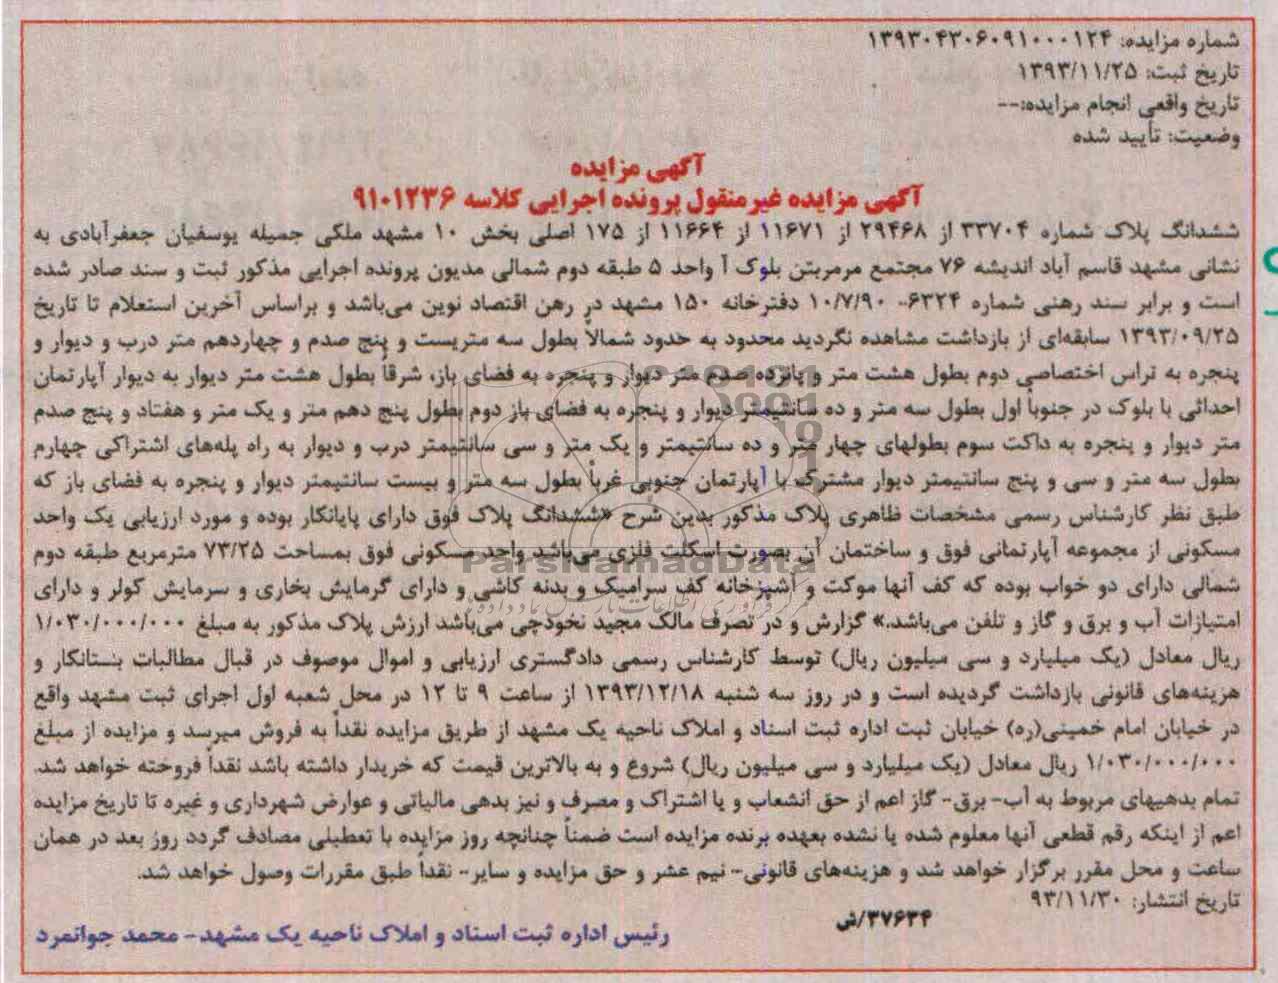 شماره مزایده: ۱۳۹۳۰۴۳۰۶۰۹۱۰۰۰۱۲۴
تاریخ ثبت: ۱۳۹۳/۱۱/۲۵
تاریخ واقعی انجام مزایده:--
وضعیت: تأیید شده
آگهی مزایده
آگهی مزایده غیرمنقول پرونده اجرایی کلاسه ۹۱۰۱۲۳۶
ششدانگ پلاک شماره ۳۳۷۰۴ از ۲۹۴۶۸ از ۱۱۶۷۱ از ۱۱۶۶۴ از ۱۷۵ اصلی بخش ۱۰ مشهد ملکی جمیله یوسفیان جعفرآبادی به
نشانی مشهد قاسم آباد اندیشه ۷۶ مجتمع مرمربتن بلوک آ واحد ۵ طبقه دوم شمالی مدیون پرونده اجرایی مذکور ثبت و سند صادر شده
است و برابر سند رهنی شماره ۶۳۲۴- ۱۰/۷/۹۰ دفترخانه ۱۵۰ مشهد در رهن اقتصاد نوین می‌باشد و براساس آخرین استعلام تا تاریخ
۱۳۹۳/۰۹/۲۵ سابقه‌ای از بازداشت مشاهده نگردید محدود به حدود شمالاً بطول سه متریست و پنج صدم و چهاردهم متر درب و دیوار و
پنجره به تراس اختصاصی دوم بطول هشت متر و پانزده صدم متر دیوار و پنجره به فضای باز، شرقاً بطول هشت متر دیوار به دیوار آپارتمان
احداثی با بلوک در جنوباً اول بطول سه متر و ده سانتیمتر دیوار و پنجره به فضای باز دوم بطول پنج دهم متر و یک متر و هفتاد و پنج صدم
متر دیوار و پنجره به داکت سوم بطولهای چهار متر و ده سانتیمتر و یک متر و سی سانتیمتر درب و دیوار به راه پله‌های اشتراکی چهارم
بطول سه متر و سی و پنج سانتیمتر دیوار مشترک با آپارتمان جنوبی غرباً بطول سه متر و بیست سانتیمتر دیوار و پنجره به فضای باز که
طبق نظر کارشناس رسمی مشخصات ظاهری پلاک مذکور بدین شرح «ششدانگ پلاک فوق دارای پایانکار بوده و مورد ارزیابی یک واحد
مسکونی از مجموعه آپارتمانی فوق و ساختمان آن بصورت اسکلت فلزی می‌باشد واحد مسکونی فوق بمساحت ۷۳/۲۵ مترمربع طبقه دوم
شمالی دارای دو خواب بوده که کف آنها موکت و آشپزخانه کف سرامیک و بدنه کاشی و دارای گرمایش بخاری و سرمایش کولر و دارای
امتیازات آب و برق و گاز و تلفن می‌باشد.» گزارش و در تصرف مالک مجید نخودچی می‌باشد ارزش پلاک مذکور به مبلغ ۱/۰۳۰/۰۰۰/۰۰۰
ریال معادل (یک میلیارد و سی میلیون ریال) توسط کارشناس رسمی دادگستری ارزیابی و اموال موصوف در قبال مطالبات بستانکار و
هزینه‌های قانونی بازداشت گردیده است و در روز سه شنبه ۱۳۹۳/۱۲/۱۸ از ساعت ۹ تا ۱۲ در محل شعبه اول اجرای ثبت مشهد واقع
در خیابان امام خمینی(ره) خیابان ثبت اداره ثبت اسناد و املاک ناحیه یک مشهد از طریق مزایده نقداً به فروش میرسد و مزایده از مبلغ
۱/۰۳۰/۰۰۰/۰۰۰ ریال معادل (یک میلیارد و سی میلیون ریال) شروع و به بالاترین قیمت که خریدار داشته باشد نقداً فروخته خواهد شد.
تمام بدهیهای مربوط به آب- برق- گاز اعم از حق انشعاب و یا اشتراک و مصرف و نیز بدهی مالیاتی و عوارض شهرداری و غیره تا تاریخ مزایده
اعم از اینکه رقم قطعی آنها معلوم شده یا نشده بعهده برنده مزایده است ضمناً چنانچه روز مزایده با تعطیلی مصادف گردد روز بعد در همان
ساعت و محل مقرر برگزار خواهد شد و هزینه‌های قانونی- نیم عشر و حق مزایده و سایر- نقداً طبق مقررات وصول خواهد شد.
تاریخ انتشار: ۹۳/۱۱/۳۰
۳۷۶۳۴/ش
رئیس اداره ثبت اسناد و املاک ناحیه یک مشهد- محمد جوانمرد
ParsNamadData